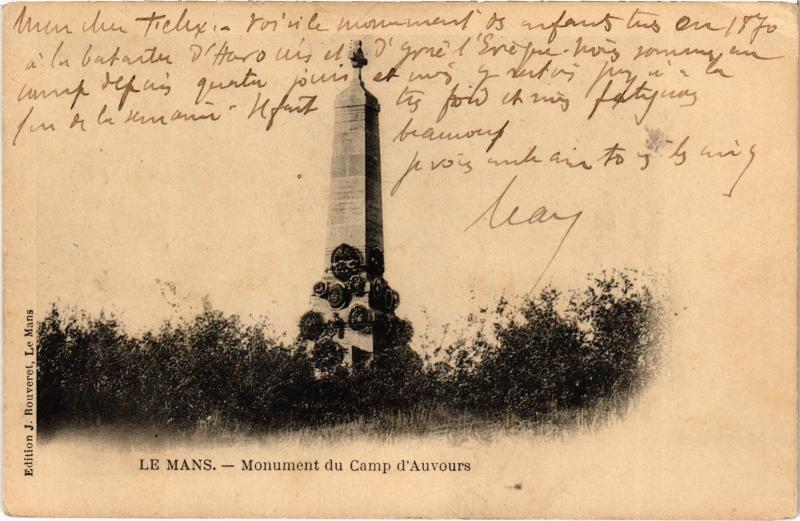 Mon cher Felix. - Voici le monument des enfants tués en 1870
à la bataille d'Auvours et d'Yvré l'Evèque. Nous sommes au
camp depuis quatre jours et nous y restons jusqu'à la
fin de la semaine. Il fait très froid et nous fatiguons
beaucoup
je vous embrasse tous les
Edition J. Bouveret, Le Mans
LE MANS. — Monument du Camp d'Auvours